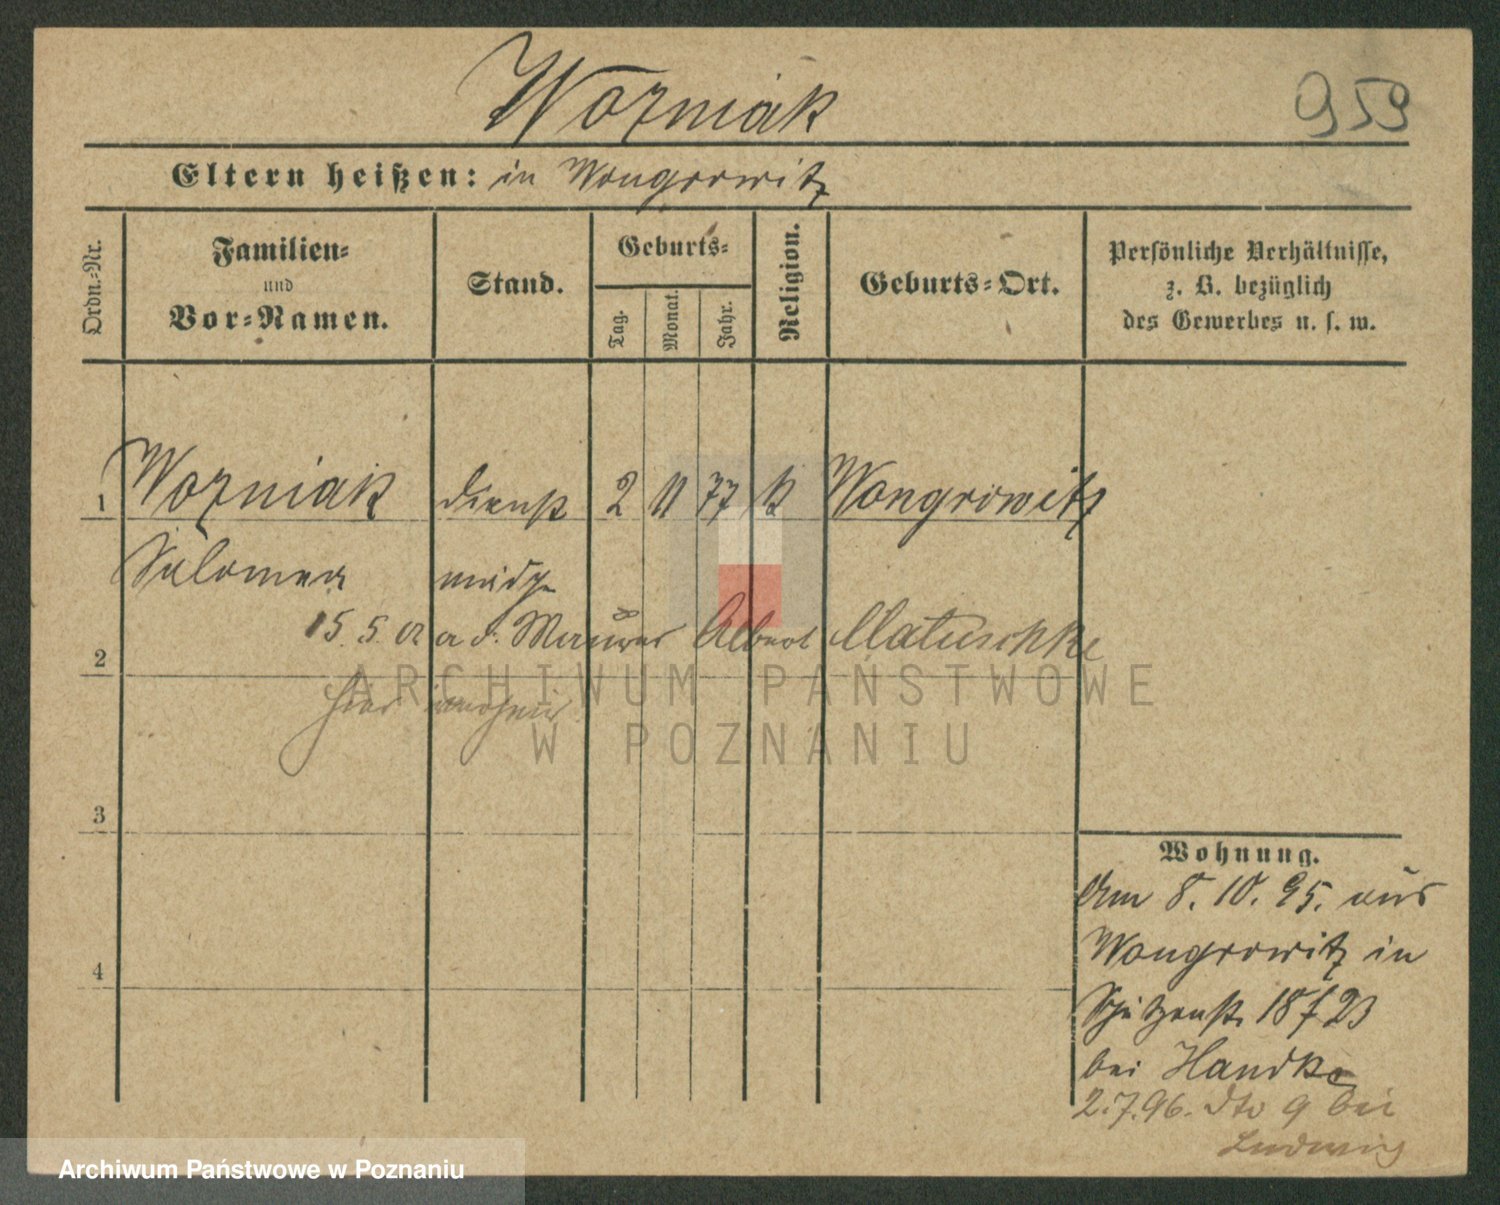 Wozniak 959
Eltern heißen: in Wongrowitz
Ordn.-Nr.
Familien-
und
Vor-Namen.
Stand.
Geburts-
Tag.
Monat.
Jahr.
Religion.
Geburts-Ort.
Persönliche Verhältnisse,
z. B. bezüglich
des Gewerbes u. s. w.
1 Wozniak dienst 2 11 77 k Wongrowitz
Salomea magd
15. 5. 02 a d. Maurer Albert Matuschke
2
hier
3
4
Wohnung.
Am 8. 10. 95. aus
Wongrowitz in
Schützenst. 18 f 23
bei Handke
2.7.96. dto 9 bei
Ludwig
ARCHIWUM PAŃSTWOWE
W POZNANIU
Archiwum Państwowe w Poznaniu